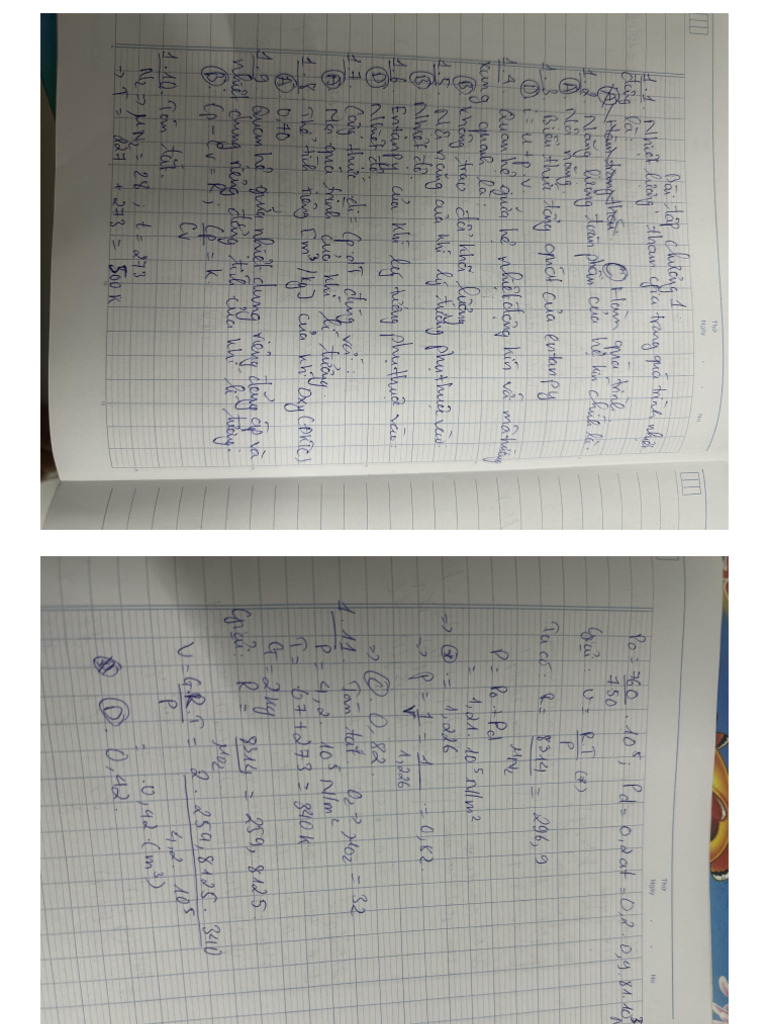 Thứ
Ngày
No
Bài tập chương 1
1.1 Nhiệt lượng tham gia trong quá trình nhiệt
động là:
C Hàm quá trình
1.2 Năng lượng toàn phần của hệ kín chính là:
A Nội năng
1.3 Biểu thức tổng quát của entanpy
D i = u + p.v
1.4 Quan hệ giữa hệ nhiệt động kín và môi trường
xung quanh là:
B Không trao đổi khối lượng
1.5 Nội năng của khí lý tưởng phụ thuộc vào
Nhiệt độ
1.6 Entanpy của khí lý tưởng phụ thuộc vào:
D Nhiệt độ
1.7 Công thức di = Cp dT đúng với:
A Mọi quá trình của khí lí tưởng.
1.8 Thể tích riêng [m³/kg] của khí Oxy (ĐKTC)
A 0,70
1.9 Quan hệ giữa nhiệt dung riêng đẳng áp và
nhiệt dung riêng đẳng tích của khí lí tưởng:
B Cp - Cv = R ; Cp/Cv = k
1.10 Tóm tắt.
N2 => μN2 = 28 ; t = 273
-> T = 227 + 273 = 500K
Thứ
Ngày
No
Po = 760/750 . 10⁵ ; Pd = 0,2at = 0,2 . 0,981.10⁵
Giải : v = RT/P (*)
Ta có : R = 8314/μN2 = 296,9
P = Po + Pd
= 1,21 . 10⁵ N/m²
=> (*) = 1,226
-> ρ = 1/v = 1/1,226 = 0,82
=> C. 0,82
1.11 Tóm tắt O2 => μO2 = 32
P = 4,2 . 10⁵ N/m²
T = 67 + 273 = 340K
G = 2kg
Giải: R = 8314/μO2 = 259,8125
V = G.R.T/P = 2 . 259,8125 . 340/4,2 . 10⁵
= 0,42 (m³)
D. 0,42.